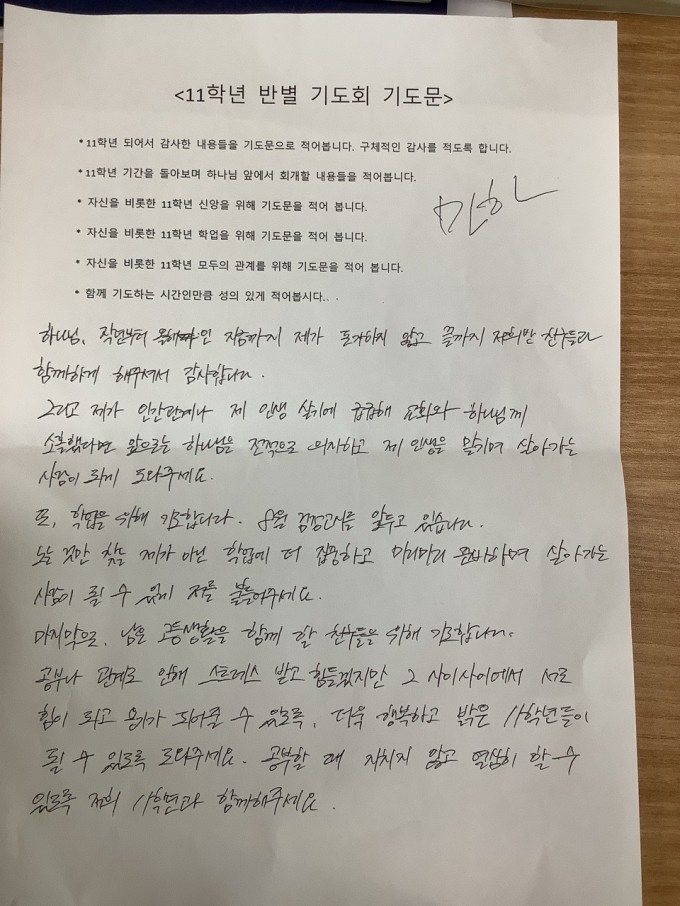 <11학년 반별 기도회 기도문>
* 11학년 되어서 감사한 내용들을 기도문으로 적어봅니다. 구체적인 감사를 적도록 합니다.
* 11학년 기간을 돌아보며 하나님 앞에서 회개할 내용들을 적어봅니다.
* 자신을 비롯한 11학년 신앙을 위해 기도문을 적어 봅니다.
* 자신을 비롯한 11학년 학업을 위해 기도문을 적어 봅니다.
* 자신을 비롯한 11학년 모두의 관계를 위해 기도문을 적어 봅니다.
* 함께 기도하는 시간인만큼 성의 있게 적어봅시다. .
하나님, 작년부터 지금까지 제가 포기하지 않고 끝까지 저희반 친구들과
함께하게 해주셔서 감사합니다.
그리고 제가 인간관계나 제 인생 살기에 급급해 교회와 하나님께
소홀했다면 앞으로는 하나님을 전적으로 의지하고 제 인생을 맡기며 살아가는
사람이 되게 도와주세요.
또, 학업을 위해 기도합니다. 8월 검정고시를 앞두고 있습니다.
노는 것만 찾는 제가 아닌 학업에 더 집중하고 미리미리 준비하며 살아가는
사람이 될 수 있게 저를 붙들어주세요.
마지막으로, 남은 고등생활을 함께 할 친구들을 위해 기도합니다.
공부나 관계로 인해 스트레스 받고 힘들겠지만 그 사이사이에서 서로
힘이 되고 용기가 되어줄 수 있도록, 더욱 행복하고 밝은 11학년들이
될 수 있도록 도와주세요. 공부할 때 지치지 않고 열심히 할 수
있도록 저희 11학년과 함께해주세요.